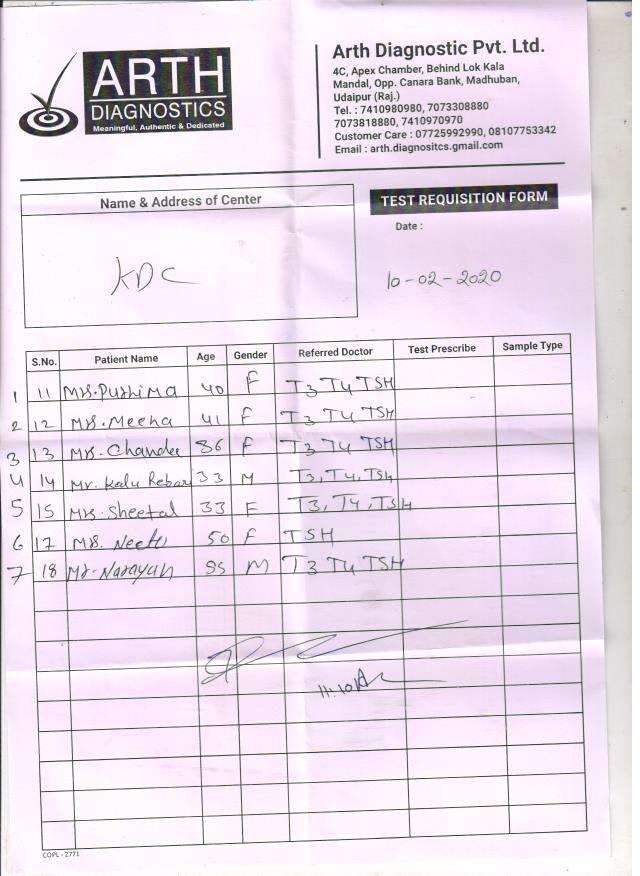 ARTH
DIAGNOSTICS
Meaningful, Authentic & Dedicated
Arth Diagnostic Pvt. Ltd.
4C, Apex Chamber, Behind Lok Kala
Mandal, Opp. Canara Bank, Madhuban,
Udaipur (Raj.)
Tel. : 7410980980, 7073308880
7073818880, 7410970970
Customer Care : 07725992990, 08107753342
Email : arth.diagnositcs.gmail.com
Name & Address of Center
TEST REQUISITION FORM
Date :
KDC
10-02-2020
S.No. Patient Name Age Gender Referred Doctor Test Prescribe Sample Type
1 11 Mrs. Purnima 40 F T3 T4 TSH
2 12 Mrs. Meena 41 F T3 T4 TSH
3 13 Mrs. Chanda 36 F T3 T4 TSH
4 14 Mr. Kalu Rebari 33 M T3, T4, TSh
5 15 Mrs. Sheetal 33 F T3, T4, TSH
6 17 Mrs. Neetu 50 F TSH
7 18 Mr. Narayan 95 M T3 T4 TSH
COPL - 2771